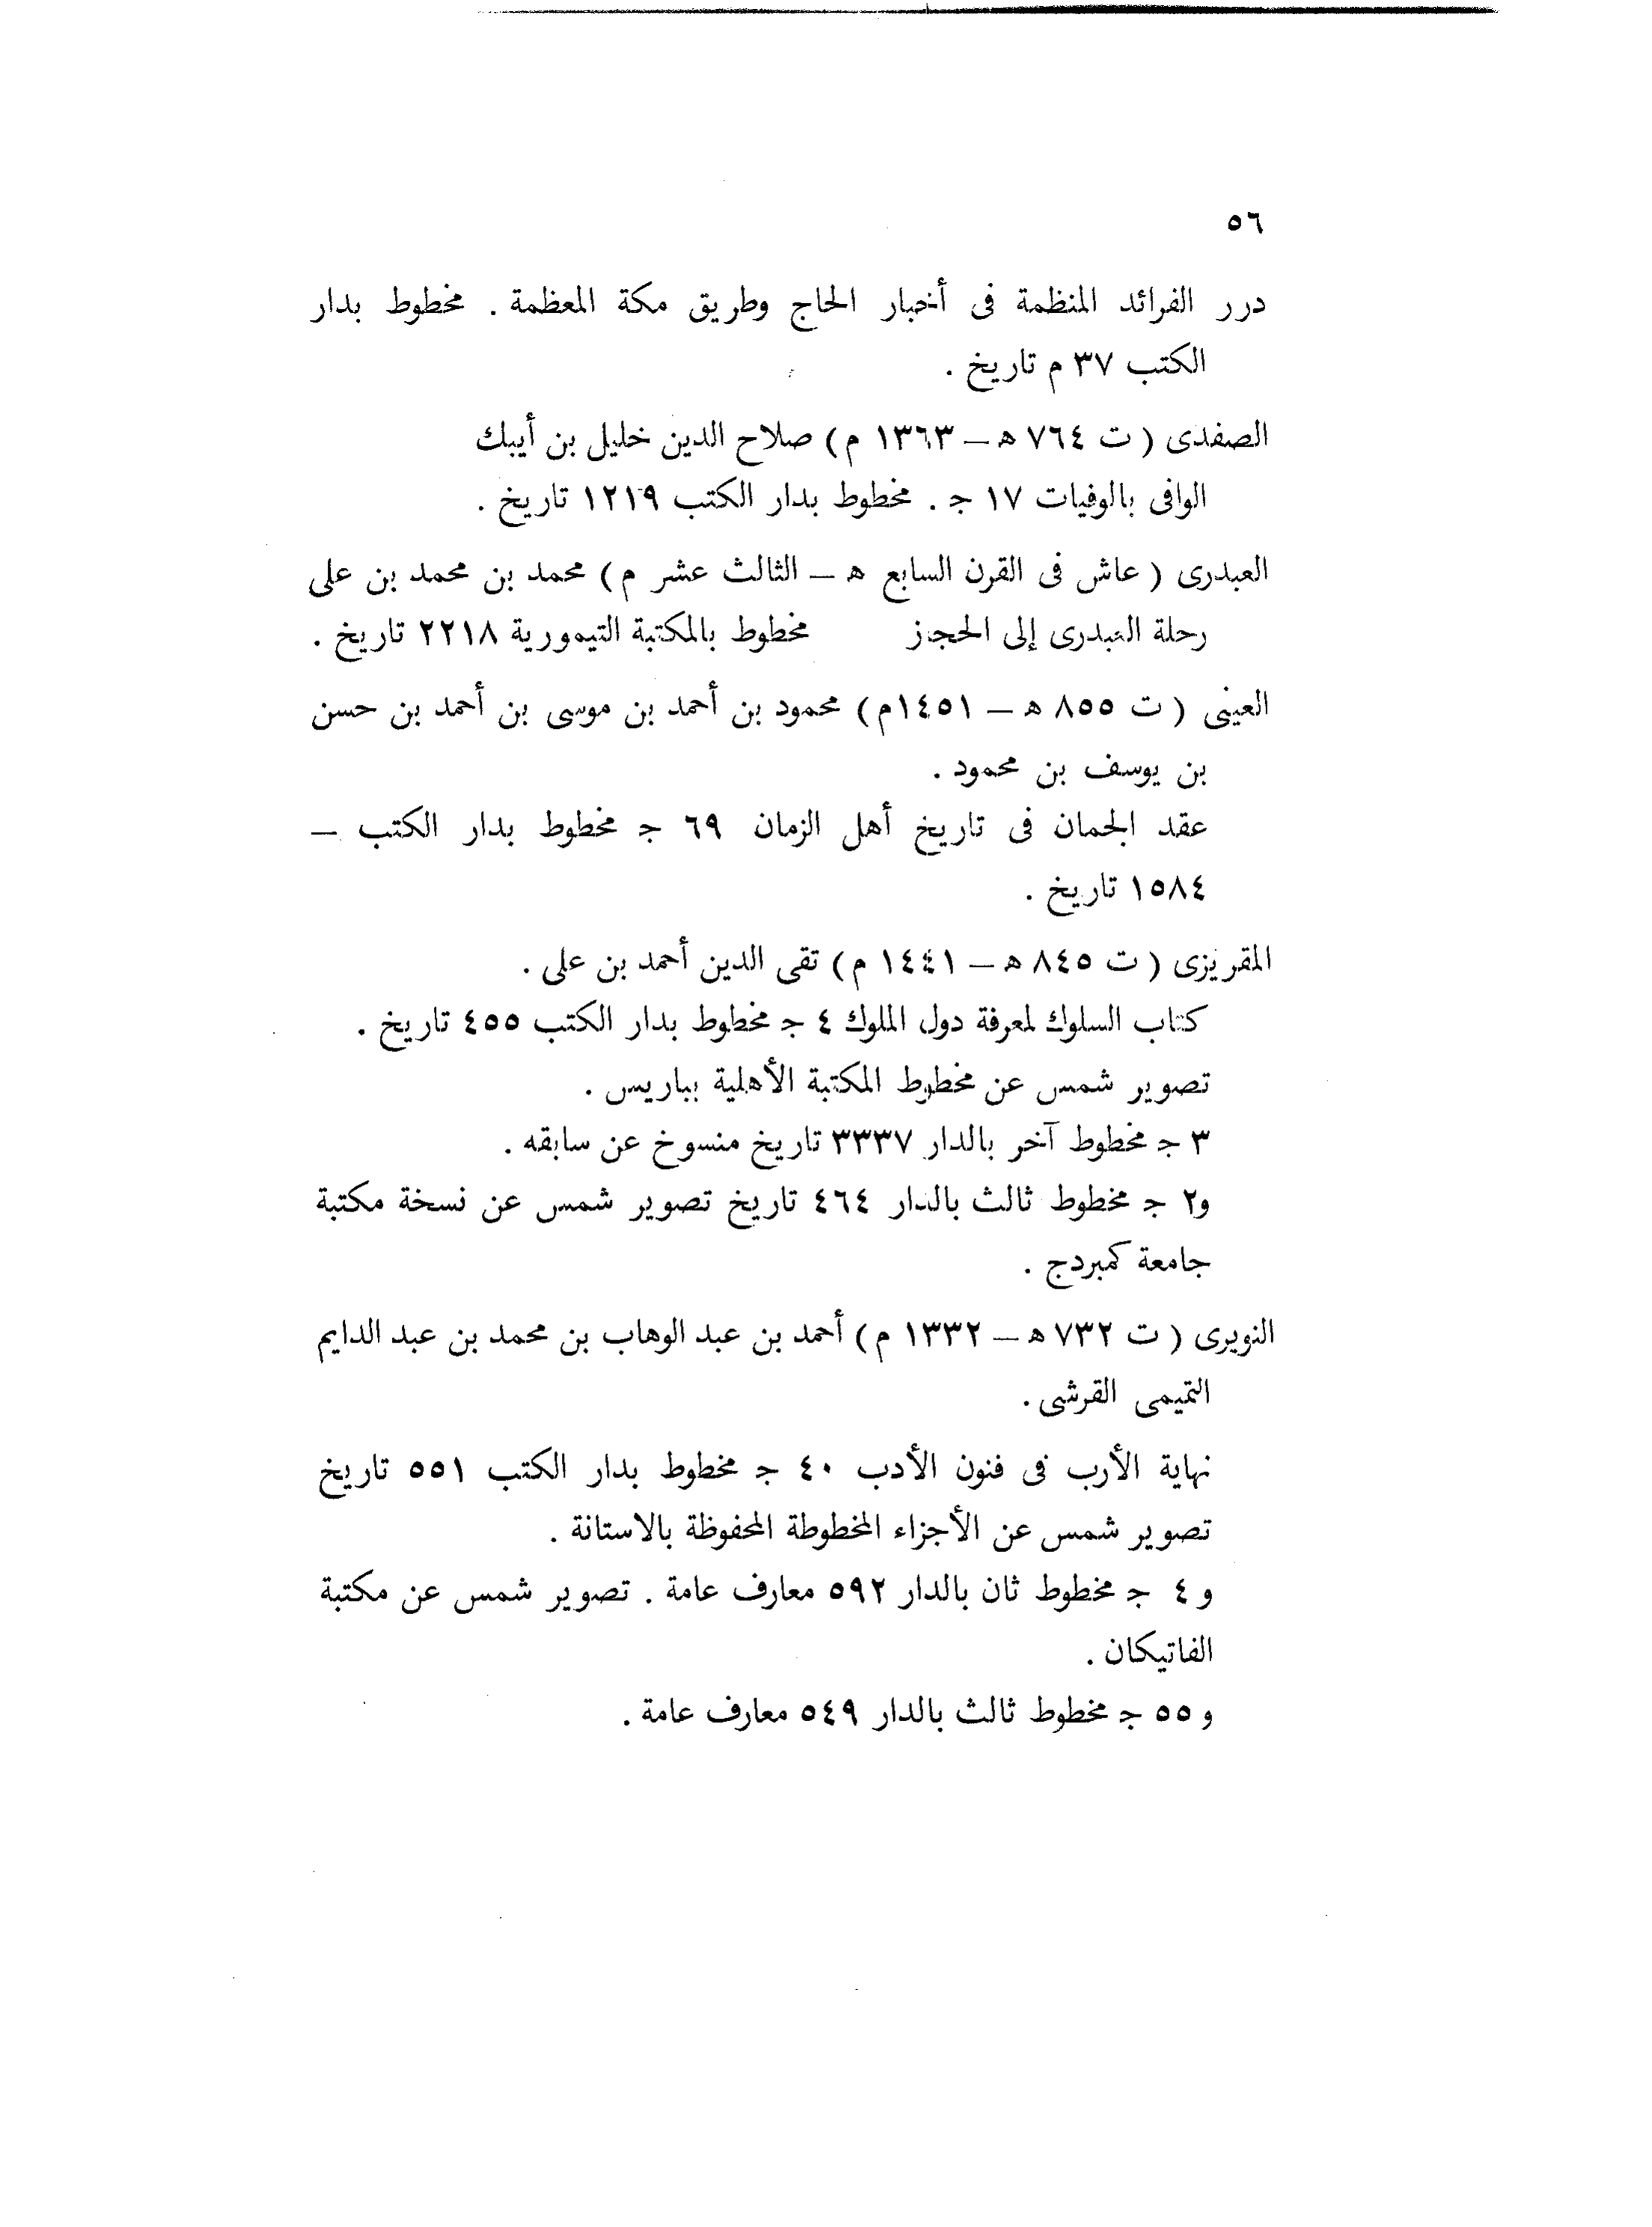 ٥٦
درر الفرائد المنظمة فى أخبار الحاج وطريق مكة المعظمة . مخطوط بدار
الكتب ٣٧ م تاريخ .
الصفدى ( ت ٧٦٤ ه – ١٣٦٣ م ) صلاح الدين خليل بن أيبك
الوافى بالوفيات ١٧ ج . مخطوط بدار الكتب ١٢١٩ تاريخ .
العبدرى ( عاش فى القرن السابع ه – الثالث عشر م ) محمد بن محمد بن على
رحلة العبدرى إلى الحجاز مخطوط بالمكتبة التيمورية ٢٢١٨ تاريخ .
العينى ( ت ٨٥٥ ه – ١٤٥١م ) محمود بن أحمد بن موسى بن أحمد بن حسن
بن يوسف بن محمود .
عقد الجمان فى تاريخ أهل الزمان ٦٩ ج مخطوط بدار الكتب –
١٥٨٤ تاريخ .
المقريزى ( ت ٨٤٥ ه – ١٤٤١ م ) تقى الدين أحمد بن على .
كتاب السلوك لمعرفة دول الملوك ٤ ج مخطوط بدار الكتب ٤٥٥ تاريخ .
تصوير شمس عن مخطوط المكتبة الأهلية بباريس .
٣ ج مخطوط آخر بالدار ٣٣٣٧ تاريخ منسوخ عن سابقه .
و٢ ج مخطوط ثالث بالدار ٤٦٤ تاريخ تصوير شمس عن نسخة مكتبة
جامعة كمبردج .
النويرى ( ت ٧٣٢ ه – ١٣٣٢ م ) أحمد بن عبد الوهاب بن محمد بن عبد الدايم
التميمى القرشى .
نهاية الأرب فى فنون الأدب ٤٠ ج مخطوط بدار الكتب ٥٥١ تاريخ
تصوير شمس عن الأجزاء المخطوطة المحفوظة بالاستانة .
و ٤ ج مخطوط ثان بالدار ٥٩٢ معارف عامة . تصوير شمس عن مكتبة
الفاتيكان .
و ٥٥ ج مخطوط ثالث بالدار ٥٤٩ معارف عامة .